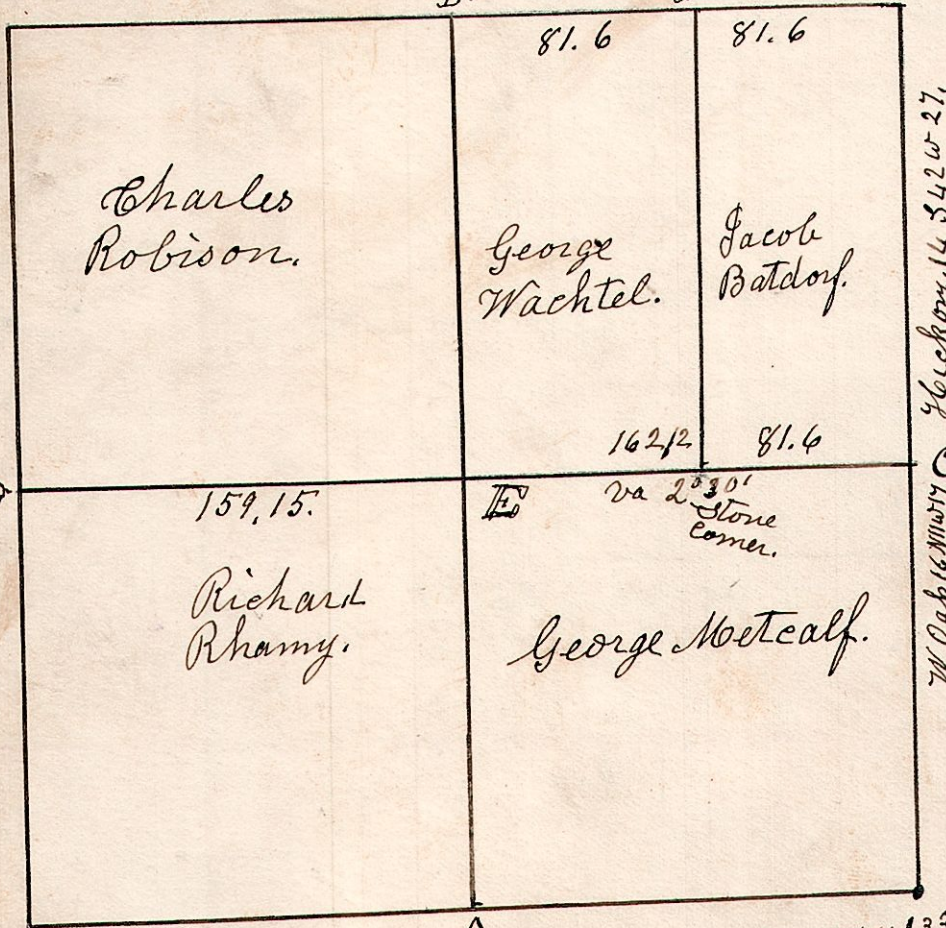 81.6
81.6
Charles
Robison.
George
Wachtel.
Jacob
Batdorf.
162,12
81.6
159,15.
E
va 2°30'
Stone
corner.
Richard
Rhamy.
George Metcalf.
Hickory 14 S 42 W 27.
W Oak 16
A